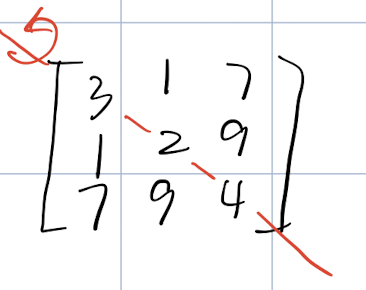 5
3 1 7
1 2 9
7 9 4